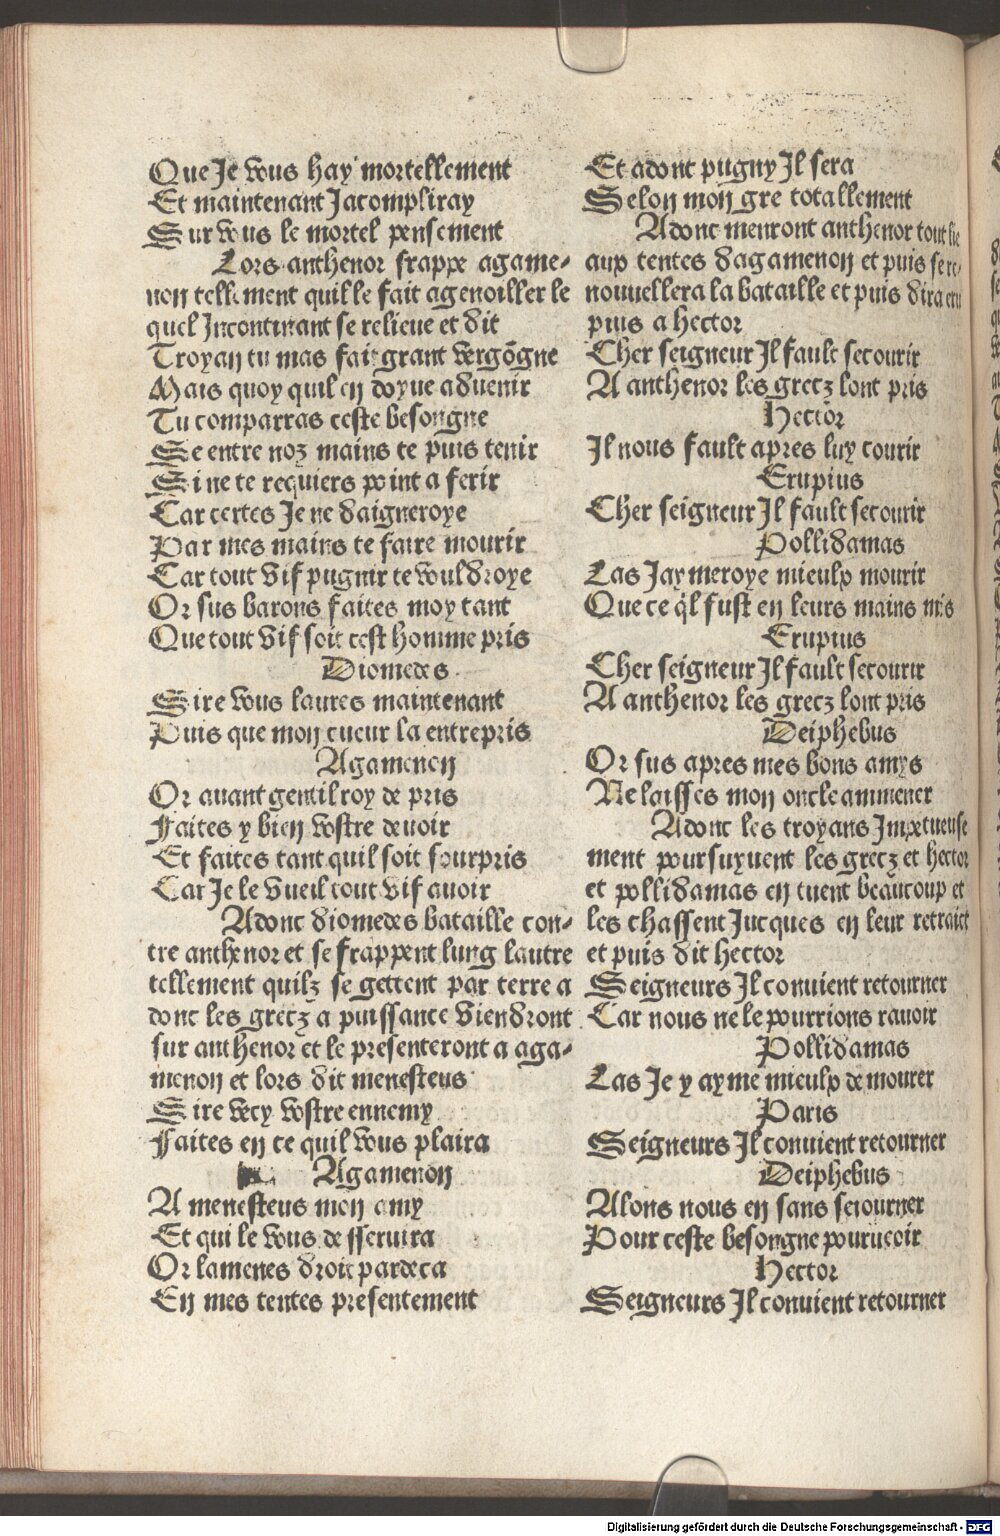 Que Je vous hay mortellement
Et maintenant Jacompliray
Sur vous le mortel pensement
Lors anthenor frappe agame-
non tellement quil le fait agenoiller le
quel Incontinant se relieue et dit
Troyan tu mas fait grant vergõgne
Mais quoy quil en doyue aduenir
Tu comparras ceste besongne
Se entre noz mains te puis tenir
Si ne te requiers point a ferir
Car certes Je ne daigneroye
Par mes mains te faire mourir
Car tout vif pugnir te vouldroye
Or sus barons faites moy tant
Que tout vif soit cest homme pris
Diomedes
Sire vous laures maintenant
Puis que mon cueur la entrepris
Agamenon
Or auant gentil roy de pris
Faites y bien vostre deuoir
Et faites tant quil soit sourpris
Car Je le vueil tout vif auoir
Adonc diomedes bataille con-
tre anthenor et se frappent lung lautre
tellement quilz se gettent par terre a
donc les grecz a puissance viendront
sur anthenor et le presenteront a aga-
menon et lors dit menesteus
Sire vecy vostre ennemy
Faites en ce quil vous plaira
Agamenon
A menesteus mon amy
Et qui le vous desseruira
Or lamenes droit pardeca
En mes tentes presentement
Et adont pugny Il sera
Selon mon gre totallement
Adonc menront anthenor tout lie
aux tentes dagamenon et puis se re-
nouuellera la bataille et puis dira eru
pius a hector
Cher seigneur Il fault secourir
A anthenor les grecz lont pris
Hector
Il nous fault apres luy courir
Erupius
Cher seigneur Il fault secourir
Pollidamas
Las Jaymeroye mieulx mourir
Que ce q̃l fust en leurs mains mis
Erupius
Cher seigneur Il fault secourir
A anthenor les grecz lont pris
Deiphebus
Or sus apres mes bons amys
Ne laisses mon oncle ammener
Adonc les troyans Impetueuse
ment poursuyuent les grecz et hector
et pollidamas en tuent beaucoup et
les chassent Jucques en leur retraict
et puis dit hector
Seigneurs Il conuient retourner
Car nous ne le pourrions rauoir
Pollidamas
Las Je y ayme mieulx de mourer
Paris
Seigneurs Il conuient retourner
Deiphebus
Alons nous en sans seiourner
Pour ceste besongne pourueoir
Hector
Seigneurs Il conuient retourner
Digitalisierung gefördert durch die Deutsche Forschungsgemeinschaft - DFG